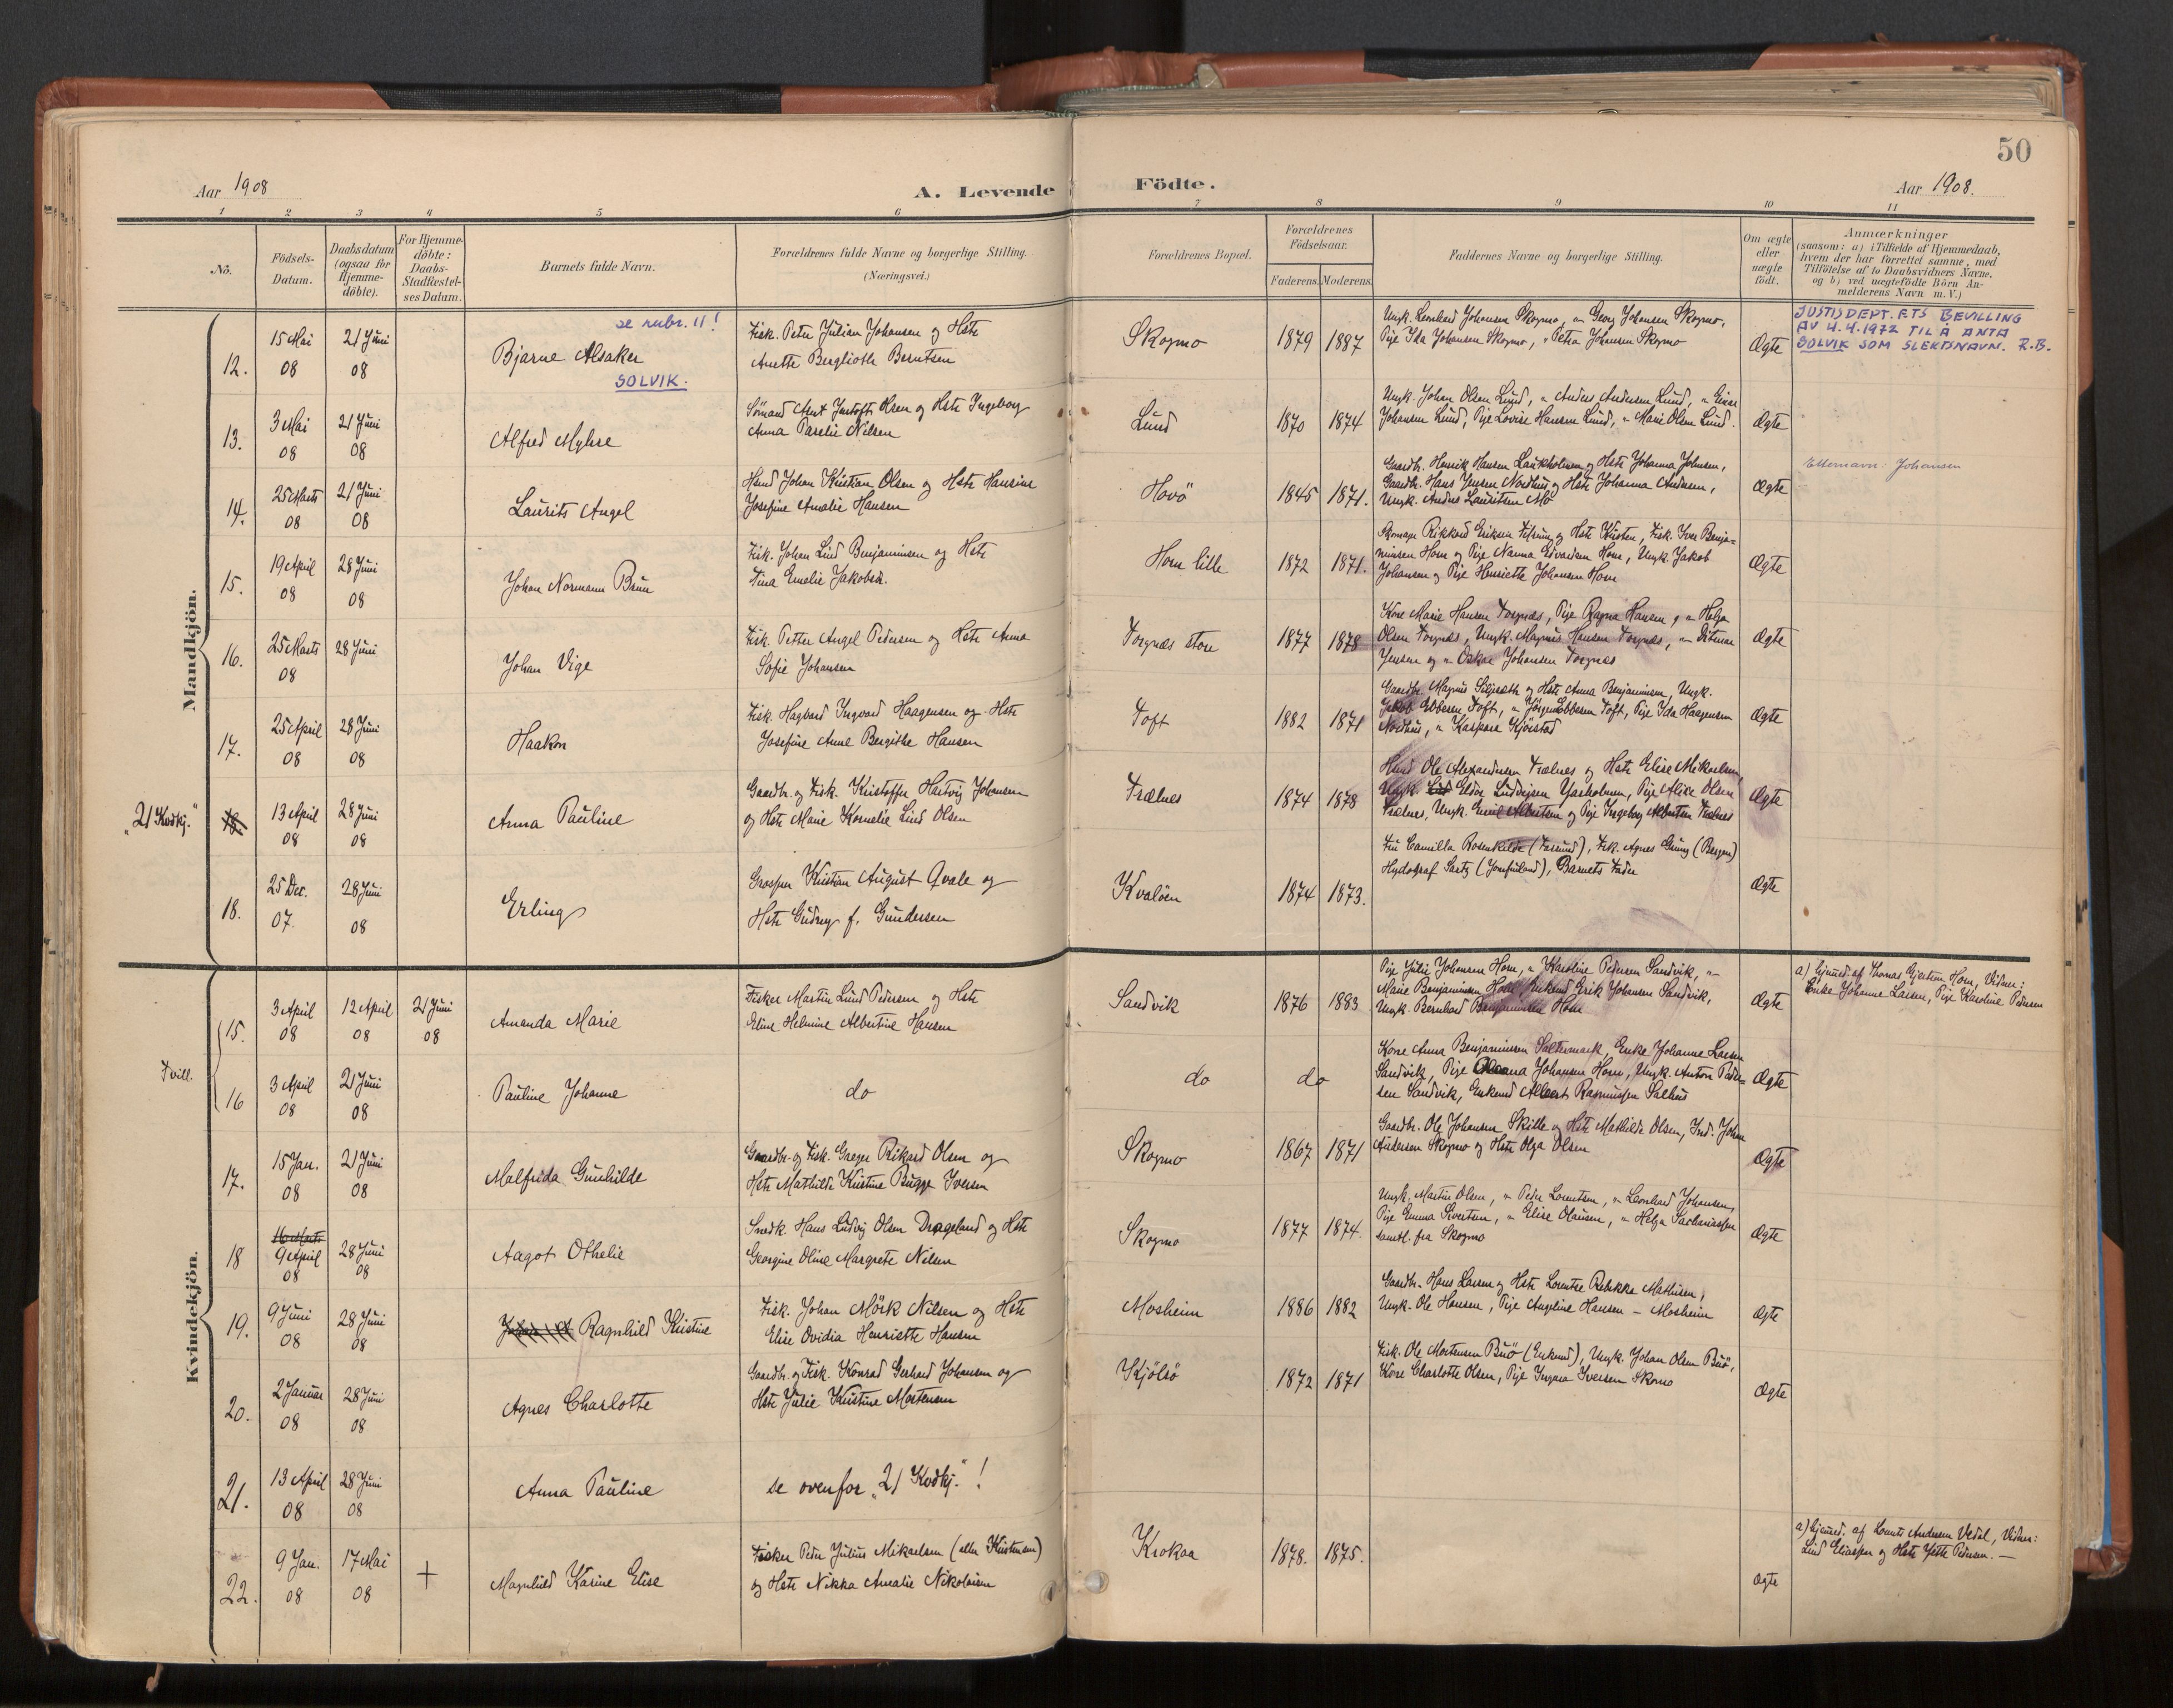 50
Aar 1908
A. Levende Födte.
Aar 1908.
1 2 3 4 5 6 7 8 9 10 11
No.
Födsels-Datum.
Daabsdatum (ogsaa for Hjemme-döbte).
For Hjemme-döbte: Daabs-Stadfæstel-ses Datum.
Barnets fulde Navn.
Forældrenes fulde Navne og borgerlige Stilling.
(Næringsvei.)
Forældrenes Bopæl.
Forældrenes Födselsaar.
Faderens. Moderens.
Faddernes Navne og borgerlige Stilling.
Om ægte eller uægte födt.
Anmærkninger
(saasom: a) i Tilfælde af Hjemmedaab,
hvem der har forrettet samme, med
Tilföielse af to Daabsvidners Navne.
og b) ved uægtefödte Börn An-
melderens Navn m. V.)
Mandkjön.
12.
15 Mai 08
21 Juni 08
se rubr. 11!
Bjarne Alsaker
SOLVIK.
Fisk. Peter Julian Johansen og Hstr
Anette Bergliothe Berntsen
Skogmo
1879 1887
Ungk. Leonhard Johansen Skogmo, " Georg Johansen Skogmo,
Pige Ida Johansen Skogmo, " Petra Johansen Skogmo
Ægte
JUSTISDEPT. ETS BEVILLING
AV 4.4.1972 TIL Å ANTA
SOLVIK SOM SLEKTSNAVN. R.B.
13.
3 Mai 08
21 Juni 08
Alfred Myhre
Sömand Arnt Olsen og Hstr Ingeborg
Anna Parelie Nilsen
Lund
1870 1874
Ungk. Johan Olsen Lund, " Anders Andersen Lund, " Einar
Johansen Lund, Pige Lovise Hansen Lund, " Marie Olsen Lund.
Ægte
14.
25 Marts 08
21 Juni 08
Laurits Angel
Hmd Johan Kristian Olsen og Hstr Hansine
Josefine Amalie Hansen
Hovö
1845 1871.
Gaardb. Henrik Hansen Laukholmen og Hstr Johanna Johnsen,
Gaardb. Hans Jensen Nordhus og Hstr Johanna Andersen,
Ungk. Anders Lauritsen Mö
Ægte
Etternavn: Johansen
15.
19 April 08
28 Juni 08
Johan Normann Brun
Fisk. Johan Lind Benjaminsen og Hstr
Tina Emelie Jakobsdr.
Horn lille
1872 1871.
Skomager Rikkard Eriksen og Hstr Kirsten, Fisk. Iver Benja-
minsen Horn og Pige Nanna Edvardsen Horn, Ungk. Jakob
Johansen og Pige Henriette Johansen Horn
Ægte
16.
25 Marts 08
28 Juni
Johan Vige
Fisk. Petter Angel Pedersen og Hstr Anna
Sofie Johansen
Torgnæs store
1877 1878
Kone Marie Hansen Torgnæs, Pige Ragna Hansen, " Helga
Olsen Torgnæs, Ungk. Magnus Hansen Torgnæs, " Ditman
Jensen og " Oskar Johansen Torgnæs
Ægte
17.
25 April 08
28 Juni 08
Haakon
Fisk. Hagbard Ingvard Haagensen og Hstr
Josefine Anne Bergithe Hansen
Toft
1882 1871
Gaardbr. Magnus Siljesæth og Hstr Anna Benjaminsen, Ungk.
Jakob Ebbesen Toft, " Jörgen Ebbesen Toft, Pige Ida Haagensen
Nordhus, " Kaspara Kjörstad
Ægte
"21 Kvdkj."
18.
13 April 08
28 Juni 08
Anna Pauline
Gaardbr. og Fisk. Kristoffer Hartvig Johansen
og Hstr Marie Kornelie Lind Olsen
Trælnes
1874 1878
Hmd Ole Alexandersen Trælnes og Hstr Elise Mikaelsen,
Ungk. Eldor Luddvigsen Yasholmen, Pige Alise Olsen
Trælnes, Ungk. Emil Albertsen og Pige Ingeborg Albertsen Trælnes
Ægte
18.
25 Dec. 07.
28 Juni 08
Erling
Grosser Kristian August Qvale og
Hstr Gudrun f. Gundersen
Kvalöen
1874 1873.
Fru Camilla Rosenkilde (Farsund), Frk. Agnes Grung (Bergen)
Hydrograf Gartz (Jomfruland), Barnets Fader
Ægte
Kvindekjön.
Tvill.
15.
3 April 08
12 April 08
21 Juni 08
Amanda Marie
Fisker Martin Lind Pedersen og Hstr
Eline Helmine Albertine Hansen
Sandvik
1876 1883
Pige Julie Johansen Horn, " Karoline Pedersen Sandvik, "
Marie Benjaminsen Horn, Enkemd Erik Johansen Sandvik,
Ungk. Bernhard Benjaminsen Horn
Ægte
a) hjemmed. af Thomas Gjertsen Horn, Vidner:
Enke Johanne Larsen, Pige Karoline Pedersen
16
3 April 08
21 Juni 08
Pauline Johanne
do
do
do
Kone Anna Benjaminsen Salternack, Enke Johanne Larsen
Sandvik, Pige Oleana Johansen Horn, Ungk. Anton Peder-
sen Sandvik, Enkemd Albert Rasmussen Salhus
Ægte
17.
15 Jan. 08
21 Juni 08
Malfrida Gunhilde
Gaardbr. og Fisk. Greger Rikard Olsen og
Hstr Mathilde Kristine Bugge Iversen
Skogmo
1867 1871
Gaardbr. Ole Johansen Skille og Hstr Mathilde Olsen, Ind. Johan
Andersen Skogmo og Hstr Olga Olsen
Ægte
18
16 Marts
9 April 08
28 Juni 08
Aagot Othelie
Snedk. Hans Ludvig Olsen Drageland og Hstr
Georgine Oline Margrete Nilsen
Skogmo
1877 1874.
Ungk. Martin Olsen, " Peder Lorentsen, " Leonhard Johansen,
Pige Emma Sivertsen, " Elise Olausen, " Helga Sachariassen
samtl. fra Skogmo
Ægte
19.
9 Juni 08
28 Juni 08
Ragnhild Kristine
Fisk. Johan Mörk Nilsen og Hstr
Elise Ovidia Henriette Hansen
Mosheim
1886 1882
Gaardbr. Hans Larsen og Hstr Lorentse Rebekka Mathisen,
Ungk. Ole Hansen, Pige Angeline Hansen – Mosheim
Ægte
20.
2 Januar 08
28 Juni 08
Agnes Charlotte
Gaardbr. og Fisk. Konrad Gerhard Johansen og
Hstr Julie Kristine Mortensen
Kjölsö
1872 1871
Fisk. Ole Mortensen Buö (Enkemd), Ungk. Johan Olsen Buö,
Kone Charlotte Olsen, Pige Ingara Iversen Skomo
Ægte
21.
13 April 08
28 Juni 08
Anna Pauline
se ovenfor „21 Kvdkj."!
22.
9 Jan. 08
17 Mai 08
+
Magnhild Karine Elise
Fisker Peder Julius Mikaelsen (eller Kristensen)
og Hstr Nikka Amalie Nikolaisen
Krokaa
1878. 1875.
Ægte
a) hjemmed. af Lornts Andersen Vedal, Vidner:
Lind Eliassen og Hstr Jette Pedersen. —